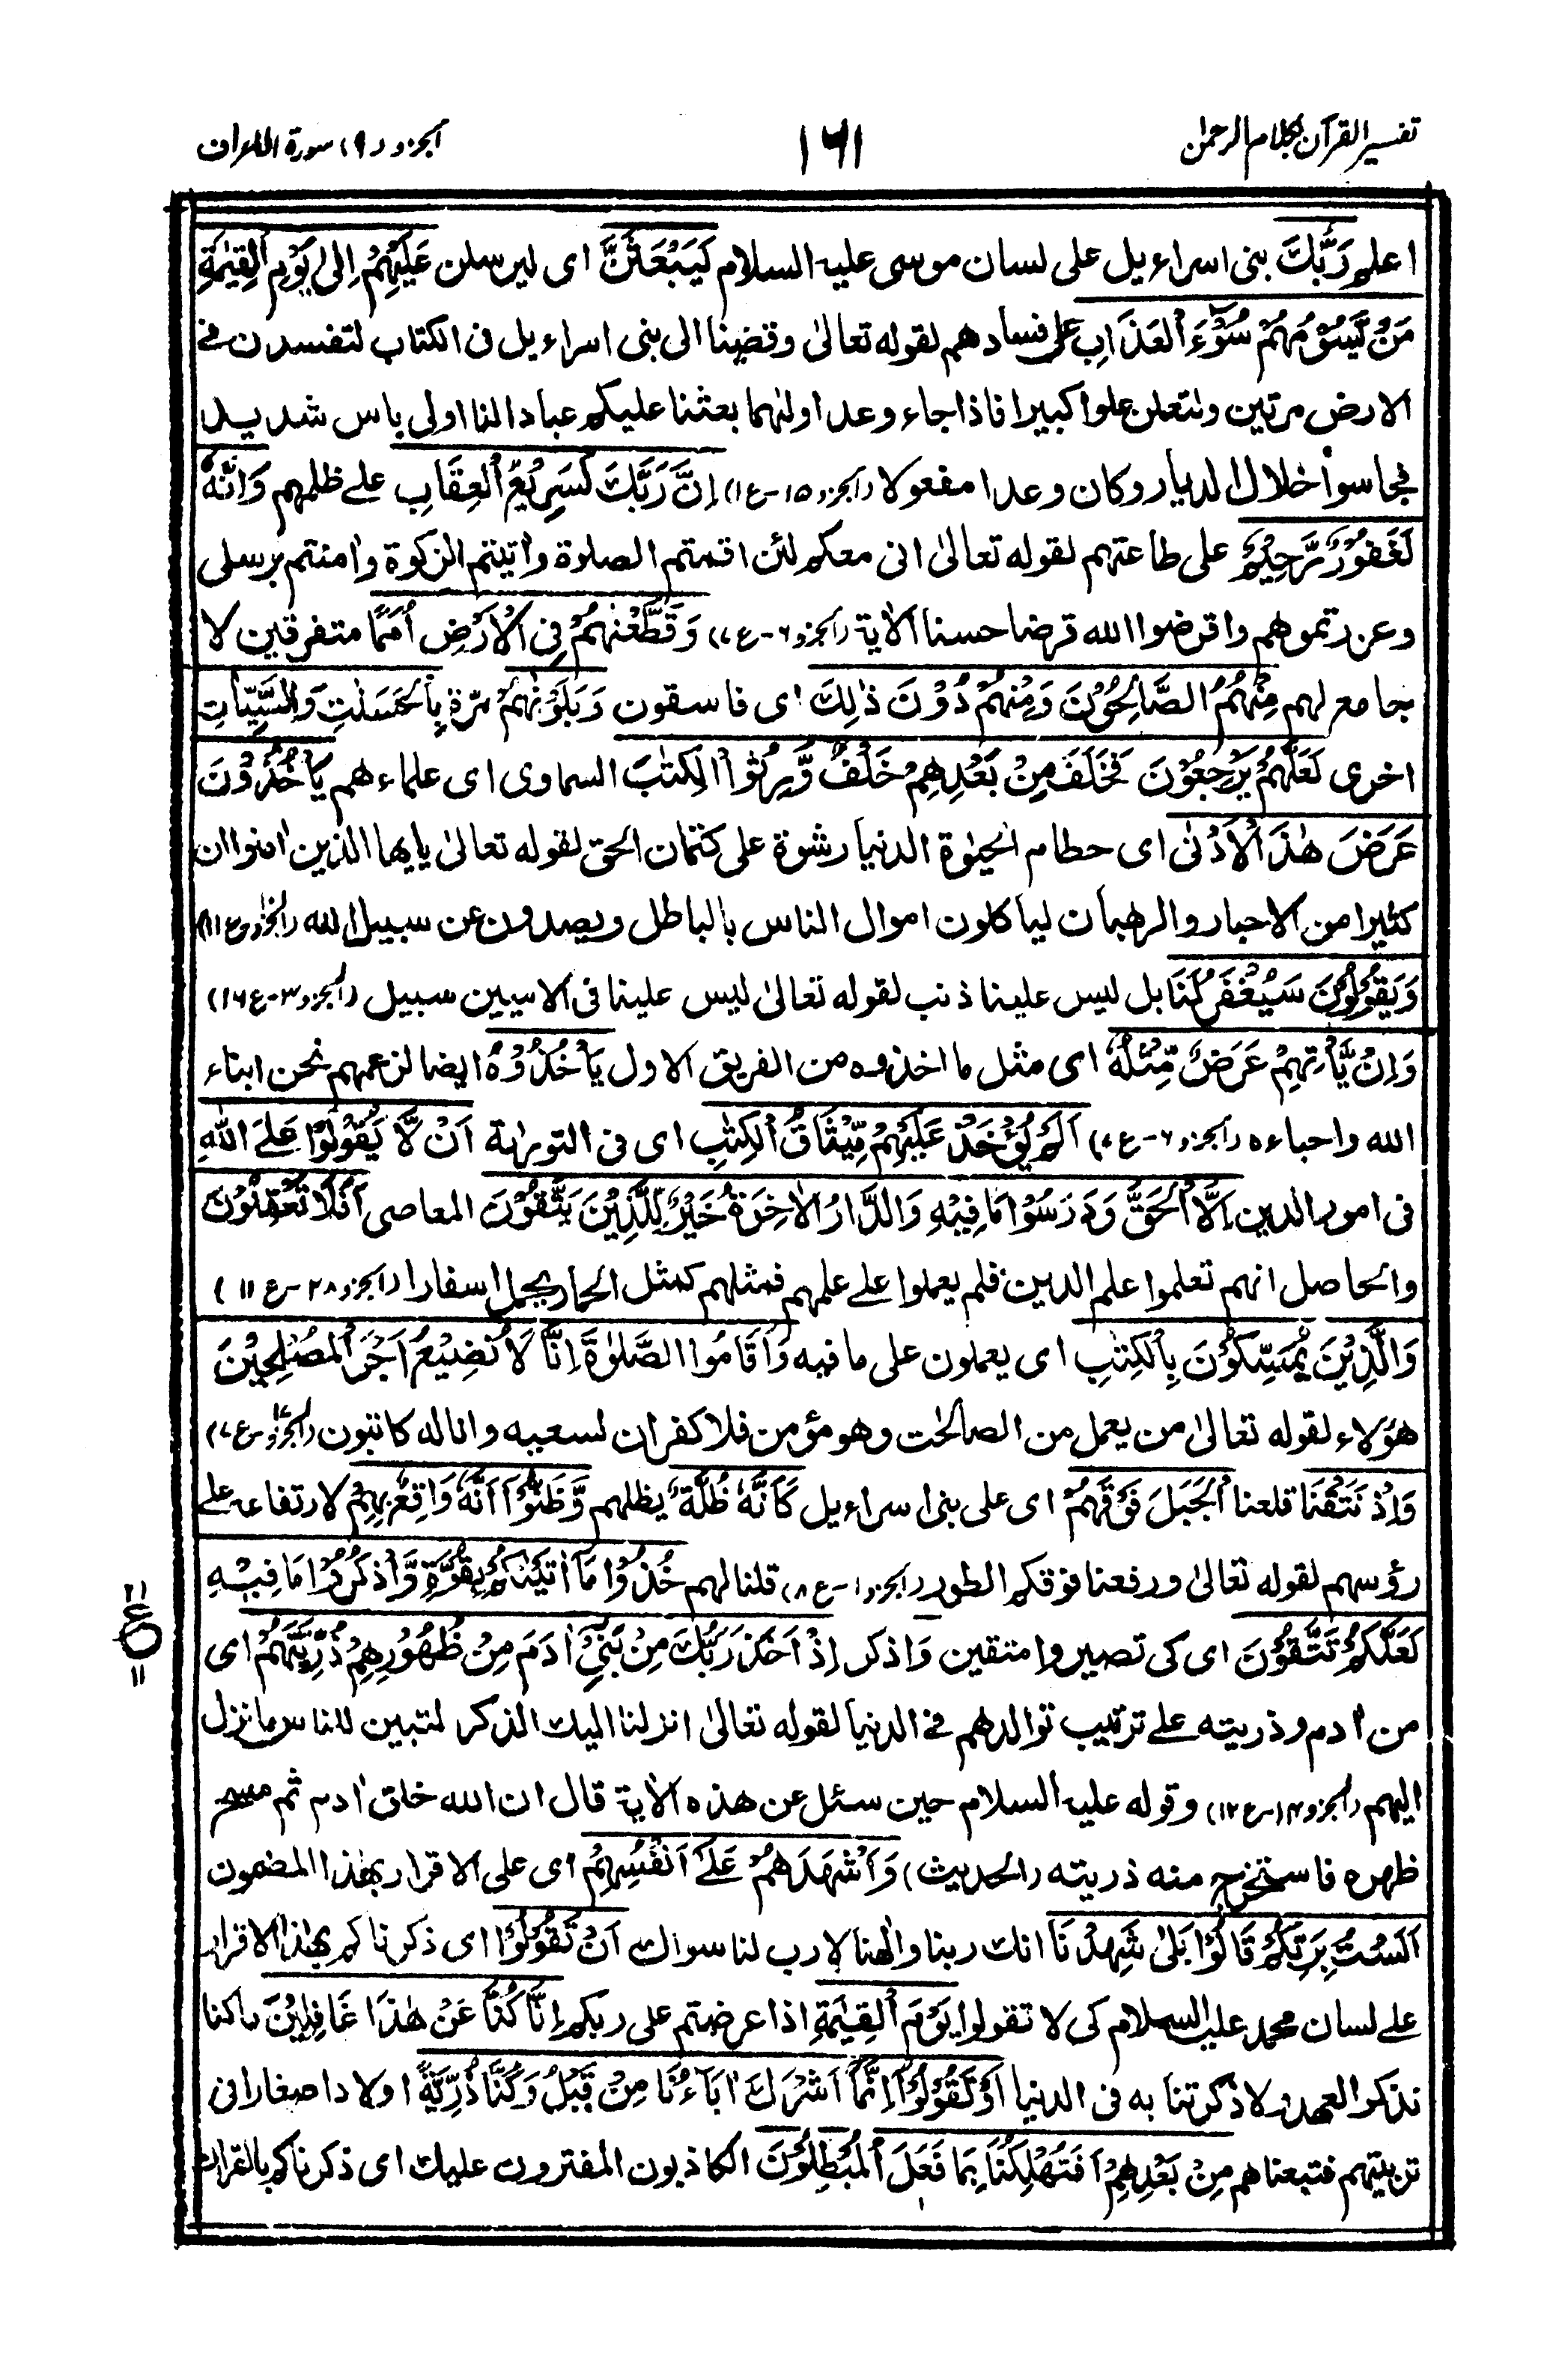 تفسير القرآن بكلام الرحمن
١٦١
الجزو (٩) سورة الاعراف
اعلم رَبُّكَ بنى اسراءيل على لسان موسى عليه السلام لَيَبْعَثَنَّ اى ليرسلن عَلَيْهِمْ اِلىٰ يَوْمِ الْقِيٰمَةِ
مَنْ يَّسُوْمُهُمْ سُوْٓءَ الْعَذَابِ على فسادهم لقوله تعالىٰ وقضينا الى بنى اسراءيل فى الكتاب لتفسدن فے
الارض مرتين ولتعلن علوا كبيرا فاذا جاء وعد اولٰهما بعثنا عليكم عبادا لنا اولى باس شديد
فجاسوا خلال الديار وكان وعدا مفعولا (الجزو ١٥-ع١) اِنَّ رَبَّكَ لَسَرِيْعُ الْعِقَابِ علے ظلمهم وَاِنَّهٗ
لَغَفُوْرٌ رَّحِيْمٌ على طاعتهم لقوله تعالىٰ انى معكم لئن اقمتم الصلوة واٰتيتم الزكوة واٰمنتم برسلى
وعزرتموهم واقرضوا الله قرضا حسنا الاٰية (الجزو ٦-ع٧) وَقَطَّعْنٰهُمْ فِى الْاَرْضِ اُمَمًا متفرقين لا
جامع لهم مِنْهُمُ الصَّالِحُوْنَ وَمِنْهُمْ دُوْنَ ذٰلِكَ اى فاسقون وَبَلَوْنٰهُمْ مرّة بِالْحَسَنٰتِ وَالسَّيِّاٰتِ
اخرى لَعَلَّهُمْ يَرْجِعُوْنَ فَخَلَفَ مِنْ بَعْدِهِمْ خَلْفٌ وَّرِثُوا الْكِتٰبَ السماوى اى علماءهم يَاْخُذُوْنَ
عَرَضَ هٰذَا الْاَدْنٰى اى حطام الحيٰوة الدنيا رشوة على كتمان الحق لقوله تعالىٰ يايها الذين اٰمنوا ان
كثيرا من الاحبار والرهبان لياكلون اموال الناس بالباطل ويصدون عن سبيل الله (الجزو ع١١)
وَيَقُوْلُوْنَ سَيُغْفَرُ لَنَا بل ليس علينا ذنب لقوله تعالىٰ ليس علينا فى الاميين سبيل (الجزو ٣-ع١٦)
وَاِنْ يَّاْتِهِمْ عَرَضٌ مِّثْلُهٗ اى مثل ما اخذوه من الفريق الاول يَاْخُذُوْهُ ايضا لزعمهم نحن ابناء
الله واحباءه (الجزو ٦-ع٧) اَلَمْ يُؤْخَذْ عَلَيْهِمْ مِّيْثَاقُ الْكِتٰبِ اى فى التورٰىة اَنْ لَّا يَقُوْلُوْا عَلَى اللّٰهِ
فى امور الدين اِلَّا الْحَقَّ وَدَرَسُوْا مَا فِيْهِ وَالدَّارُ الْاٰخِرَةُ خَيْرٌ لِّلَّذِيْنَ يَتَّقُوْنَ المعاصى اَفَلَا تَعْقِلُوْنَ
والحاصل انهم تعلموا علم الدين فلم يعملوا علے علمهم فمثلهم كمثل الحمار يحمل اسفارا (الجزو ٢٨-ع ١١)
وَالَّذِيْنَ يُمَسِّكُوْنَ بِالْكِتٰبِ اى يعملون على ما فيه وَاَقَامُوا الصَّلٰوةَ اِنَّا لَا نُضِيْعُ اَجْرَ الْمُصْلِحِيْنَ
هؤلاء لقوله تعالىٰ من يعمل من الصالحٰت وهو مؤمن فلا كفران لسعيه وانا له كاتبون (الجزو ١٧-ع٧)
وَاِذْ نَتَقْنَا قلعنا الْجَبَلَ فَوْقَهُمْ اى على بنى اسراءيل كَاَنَّهٗ ظُلَّةٌ يظلهم وَّظَنُّوْٓا اَنَّهٗ وَاقِعٌ بِهِمْ لارتفاعه علے
رؤسهم لقوله تعالىٰ ورفعنا فوقكم الطور (الجزو ١-ع٨) قلنا لهم خُذُوْا مَآ اٰتَيْنٰكُمْ بِقُوَّةٍ وَّاذْكُرُوْا مَا فِيْهِ
لَعَلَّكُمْ تَتَّقُوْنَ اى كى تصيروا متقين وَاذكر اِذْ اَخَذَ رَبُّكَ مِنْ بَنِىْٓ اٰدَمَ مِنْ ظُهُوْرِهِمْ ذُرِّيَّتَهُمْ اى
من اٰدم وذريته علے ترتيب توالدهم فے الدنيا لقوله تعالىٰ انزلنا اليك الذكر لتبين للناس ما نزل
اليهم (الجزو ١٤-ع١٢) وقوله عليه السلام حين سئل عن هذه الاٰية قال ان الله خلق اٰدم ثم مسح
ظهره فاستخرج منه ذريته (الحديث) وَاَشْهَدَهُمْ عَلٰٓى اَنْفُسِهِمْ اى على الاقرار بهٰذا المضمون
اَلَسْتُ بِرَبِّكُمْ قَالُوْا بَلٰى شَهِدْنَا انك ربنا والٰهنا لا رب لنا سواك اَنْ تَقُوْلُوْا اى ذكرناكم بهٰذا الاقرار
علے لسان محمد عليه السلام كى لا تقولوا يَوْمَ الْقِيٰمَةِ اذا عرضتم على ربكم اِنَّا كُنَّا عَنْ هٰذَا غَافِلِيْنَ ما كنا
نذكر العهد ولا ذكرتنا به فى الدنيا اَوْ تَقُوْلُوْٓا اِنَّمَآ اَشْرَكَ اٰبَآءُنَا مِنْ قَبْلُ وَكُنَّا ذُرِّيَّةً اولادا صغارا فى
تربيتهم فتبعناهم مِنْ بَعْدِهِمْ اَفَتُهْلِكُنَا بِمَا فَعَلَ الْمُبْطِلُوْنَ الكاذبون المفترون عليك اى ذكرناكم بالقراٰن
ع
١١